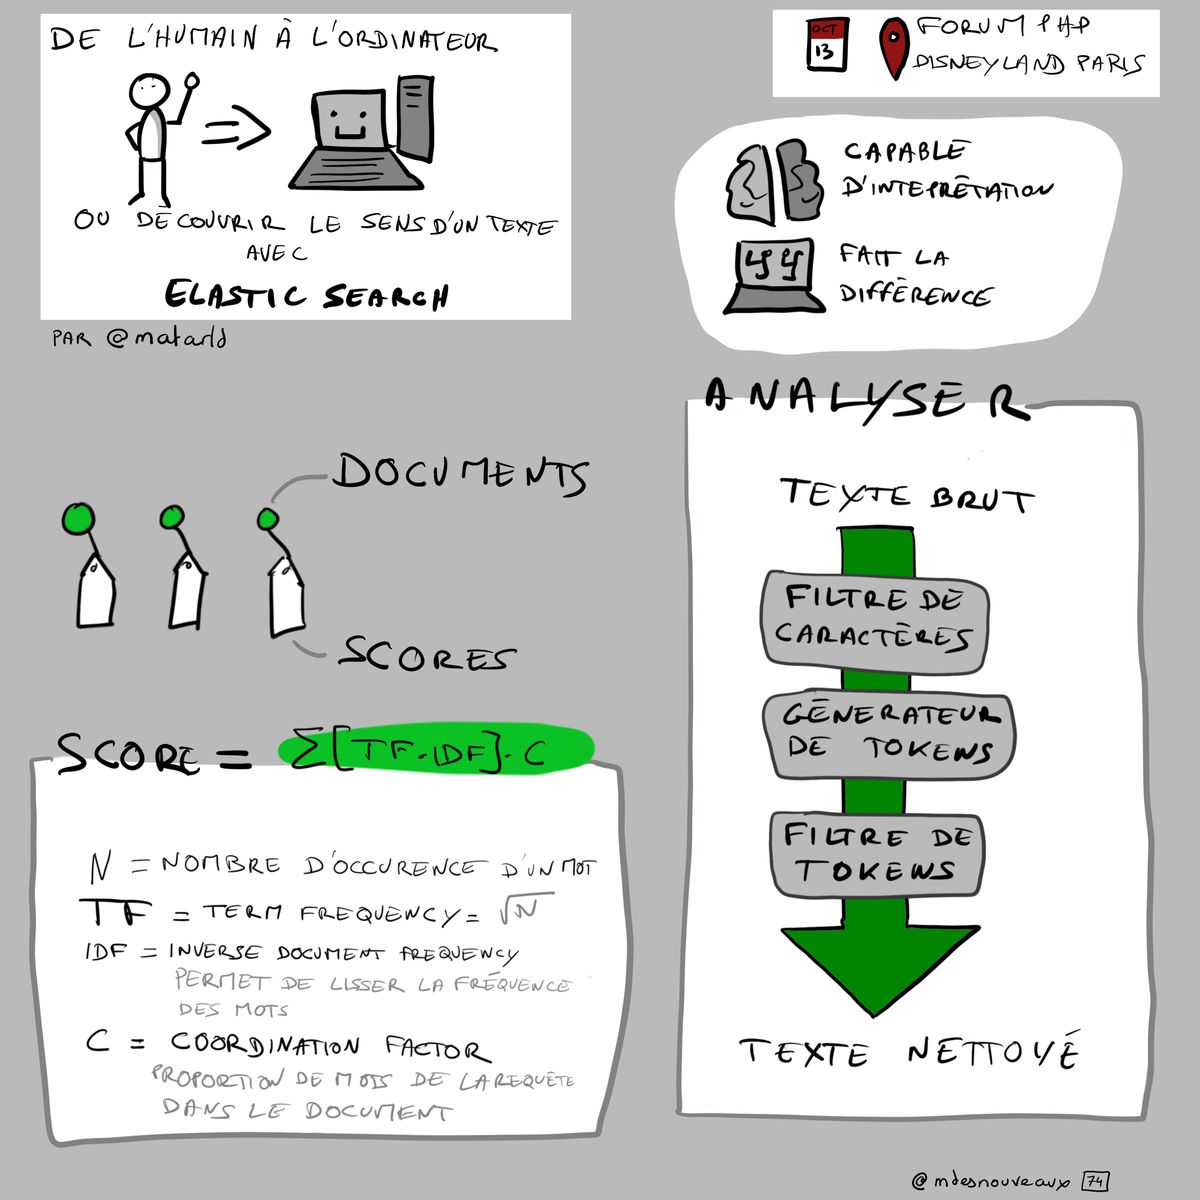 DE L'HUMAIN À L'ORDINATEUR
OU DÉCOUVRIR LE SENS D'UN TEXTE
AVEC
ELASTIC SEARCH
PAR @matarld
OCT
13
FORUM PHP
DISNEYLAND PARIS
CAPABLE
D'INTEPRÊTATION
FAIT LA
DIFFÉRENCE
DOCUMENTS
SCORES
SCORE = Σ[TF.IDF].C
N = NOMBRE D'OCCURENCE D'UN MOT
TF = TERM FREQUENCY = √N
IDF = INVERSE DOCUMENT FREQUENCY
PERMET DE LISSER LA FRÉQUENCE
DES MOTS
C = COORDINATION FACTOR
PROPORTION DE MOTS DE LA REQUÊTE
DANS LE DOCUMENT
ANALYSER
TEXTE BRUT
FILTRE DE
CARACTÈRES
GÉNERATEUR
DE TOKENS
FILTRE DE
TOKENS
TEXTE NETTOYÉ
@mdesnouveaux 74